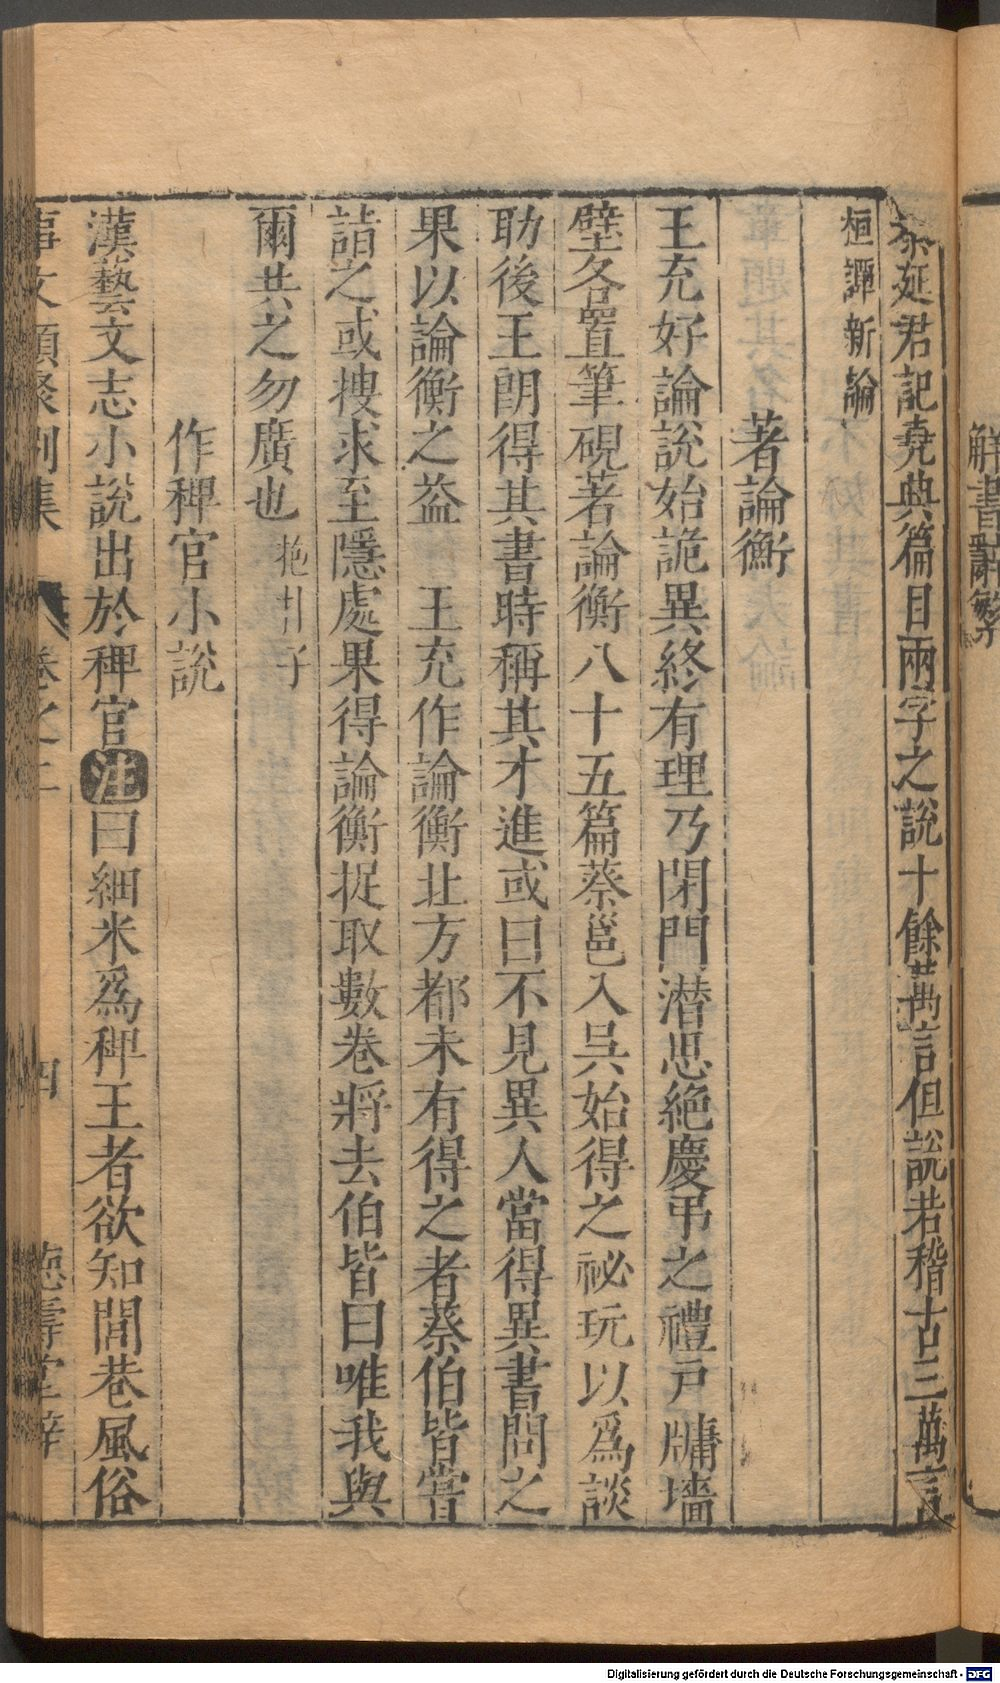 解書辭繁
秦延君記堯典篇目兩字之說十餘萬言但說若稽古三萬言
桓譚新論
著論衡
王充好論說始詭異終有理乃閉門潜思絕慶弔之禮戸牗墻
壁各置筆硯著論衡八十五篇蔡邕入吳始得之祕玩以爲談
助後王朗得其書時稱其才進或曰不見異人當得異書問之
果以論衡之益 王充作論衡北方都未有得之者蔡伯皆嘗
詣之或搜求至隱處果得論衡捉取數卷將去伯皆曰唯我與
爾共之勿廣也 子
作稗官小說
漢藝文志小說出於稗官注曰細米爲稗王者欲知閭巷風俗
事文類聚别集 卷之二 四 德壽堂梓
Digitalisierung gefördert durch die Deutsche Forschungsgemeinschaft - DFG